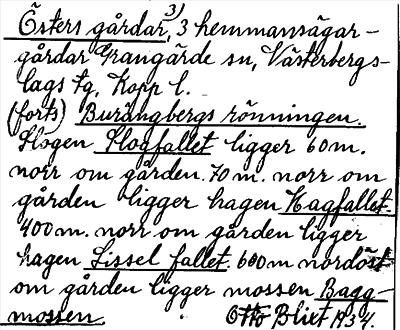 Östers gårdar, 3) 3 hemmansägar-
gårdar Grangärde sn, Västerbergs-
lags tg, Kopp l.
(forts) Burängbergs rönningen.
Skogen Slogfallet ligger 60 m.
norr om gården. 70 m. norr om
gården ligger hagen Hagfallet.
400 m. norr om gården ligger
hagen Lissel fallet. 600 m nordöst
om gården ligger mossen Bagg-
mossen. Otto Blixt 1934.